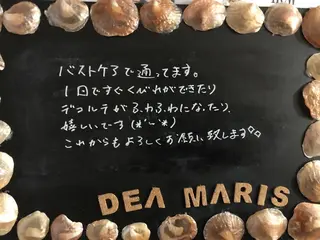 バストケアで通ってます。
1回ですぐくびれができたり
デコルテがふわふわになったり
嬉しいです(*˘︶˘*)
これからもよろしくお願い致します◇◇
DEA MARIS